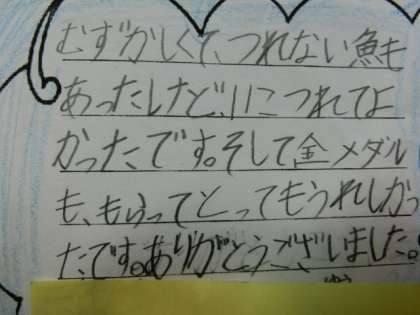 むずかしくて、つれない魚も
あったけど、11こつれてよ
かったです。そして金メダル
も、もらってとってもうれしかっ
たです。ありがとうございました。